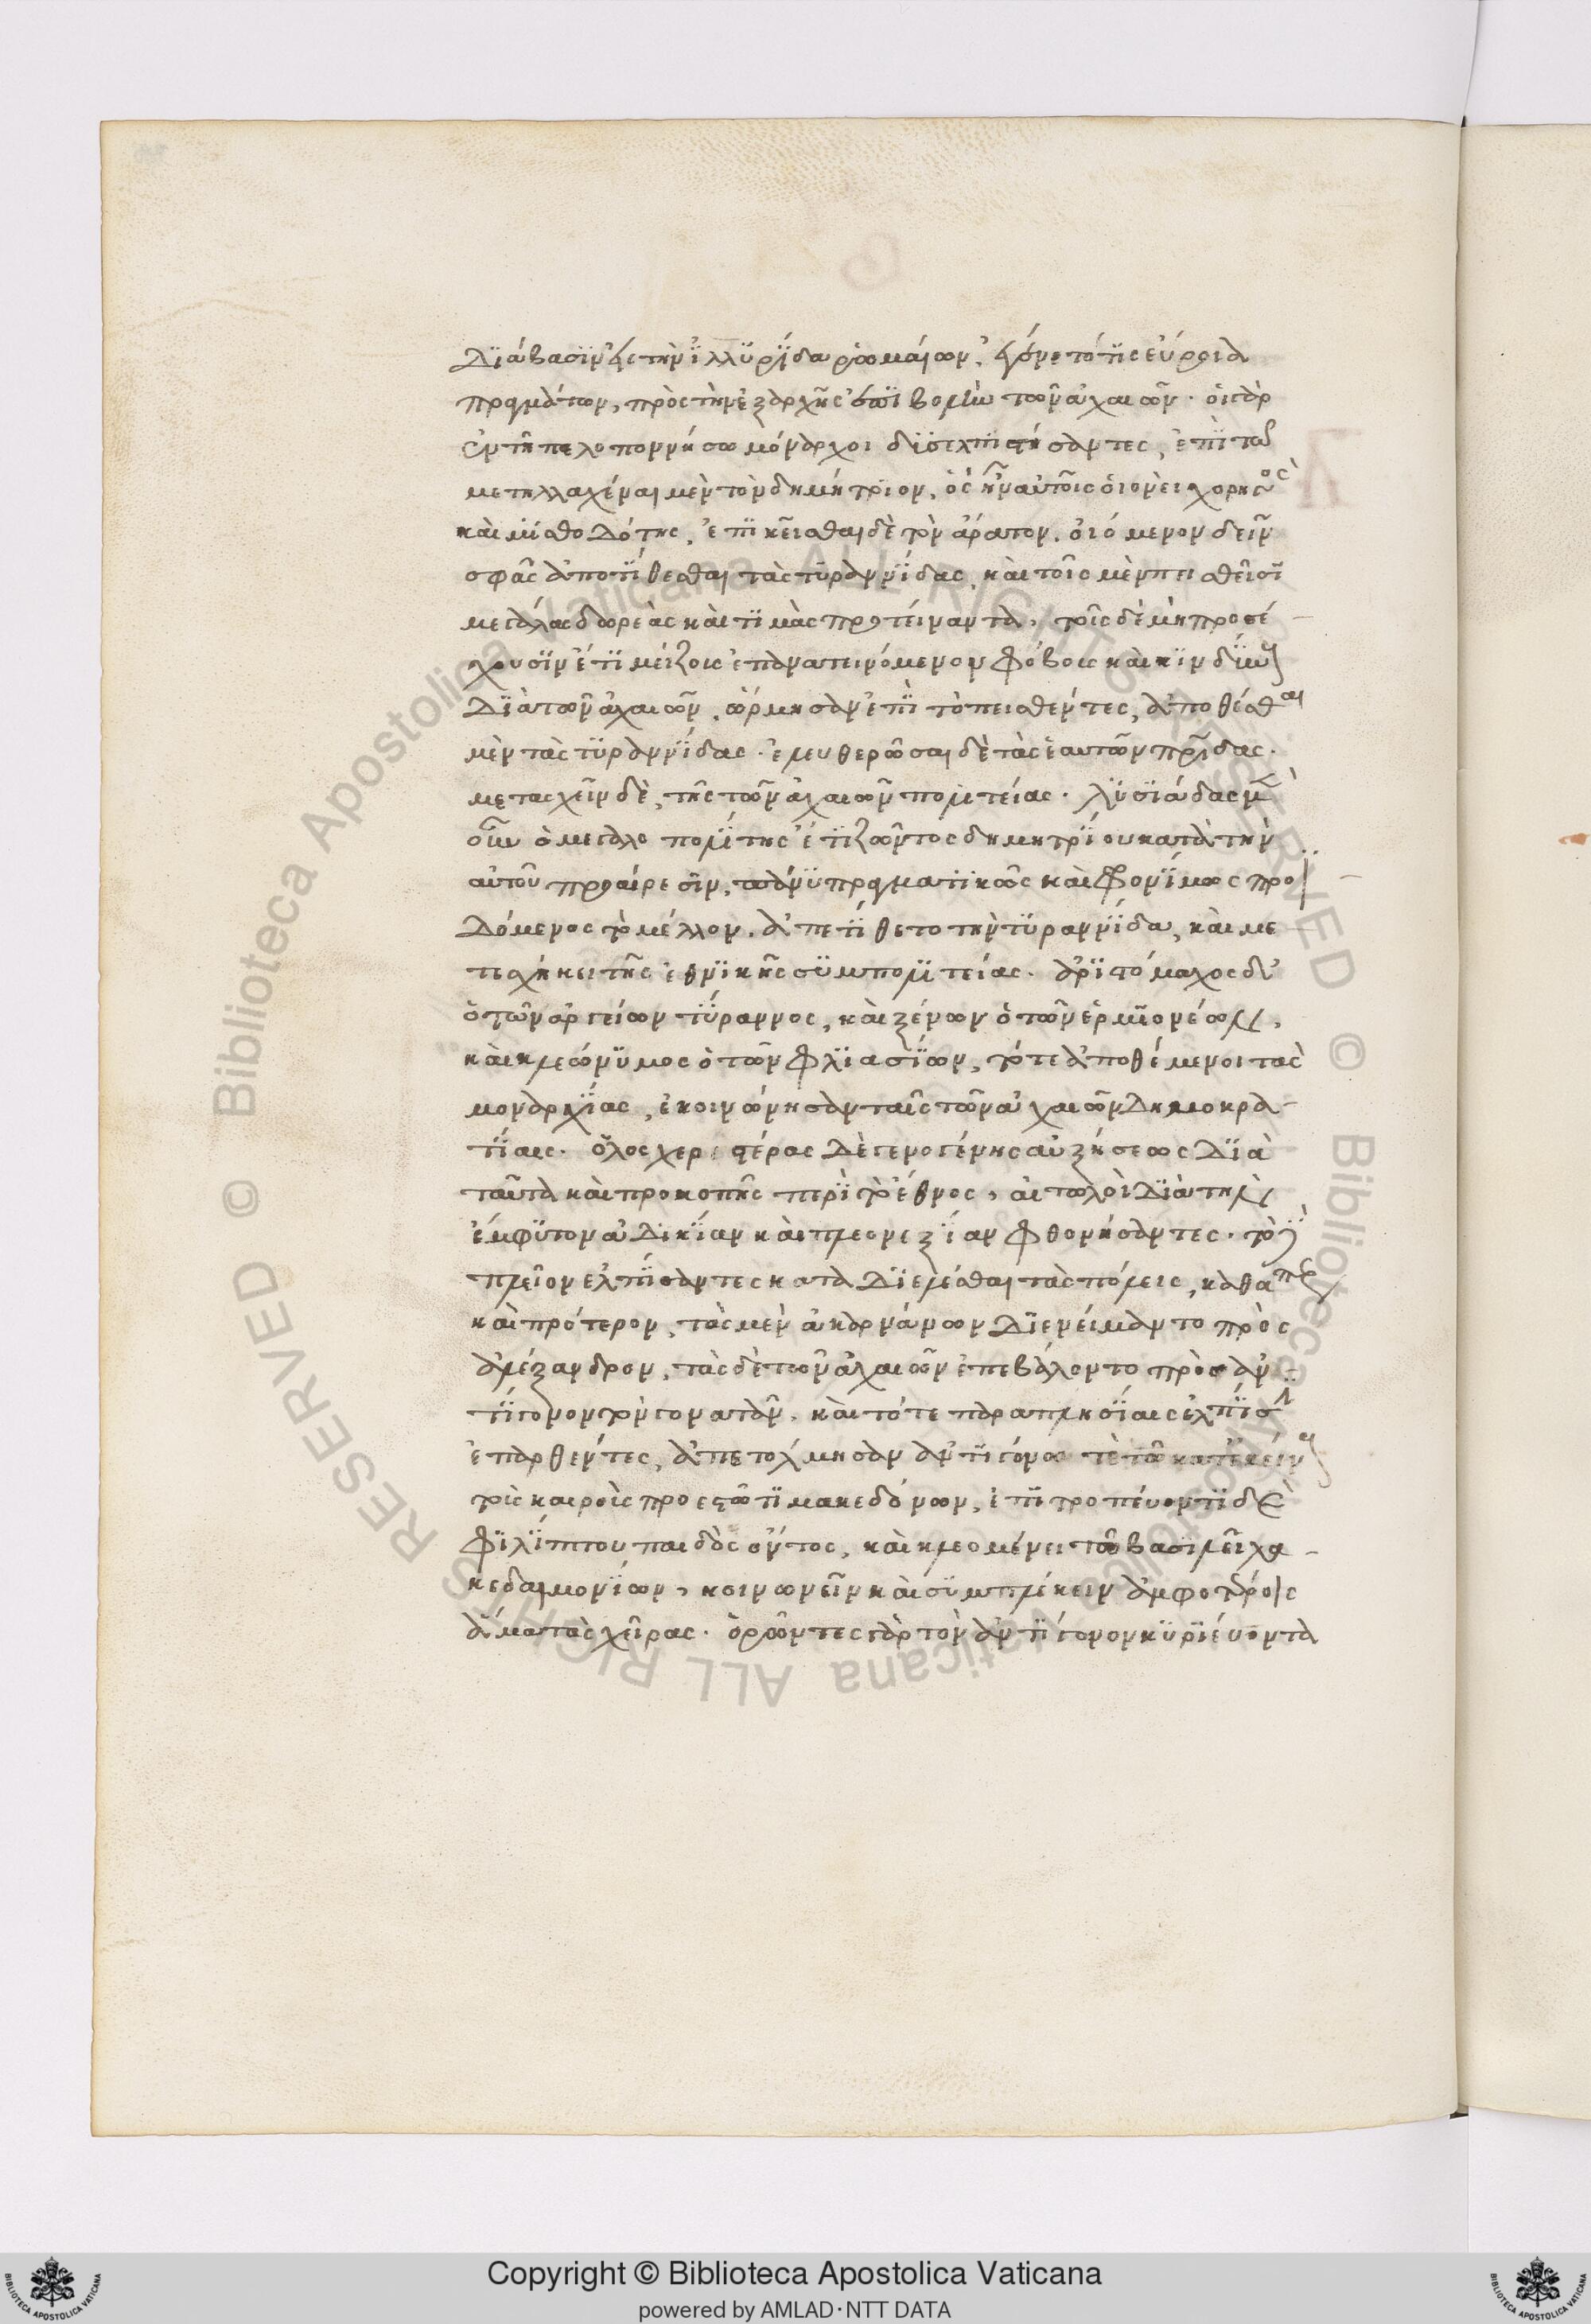 διάβασιν εἰς τὴν ἰλλυρίδα ῥωμαίων, ἐγένετό τις εὔροια
πραγμάτων, πρὸς τὴν ἐξαρχῆς ἐπιβολὴν τῶν ἀχαιῶν. οἱ γὰρ
ἐν τῆ πελοποννήσω μόναρχοι δυσελπιστήσαντες, ἐπὶ τῶ
μετηλλαχέναι μὲν τὸν δημήτριον, ὃς ἦν αὐτοῖς οἱονεὶ χορηγὸς
καὶ μισθοδότης, ἐπικεῖσθαι δὲ τὸν ἄρατον. οἰόμενον δεῖν
σφᾶς ἀποτίθεσθαι τὰς τυραννίδας, καὶ τοῖς μὲν πεισθεῖσι
μεγάλας δωρεὰς καὶ τιμὰς προτείναντα, τοῖς δὲ μὴ προσέ
χουσιν ἔτι μείζους ἐπανατεινόμενον φόβους καὶ κινδύνους
διὰ τῶν ἀχαιῶν, ὥρμησαν ἐπὶ τὸ πεισθέντες, ἀποθέσθαι
μὲν τὰς τυραννίδας. ἐλευθερῶσαι δὲ τὰς ἑαυτῶν πρίδας.
μετασχεῖν δὲ, τῆς τῶν ἀχαιῶν πολιτείας. λυσιάδας μὲν
οὖν ὁ μεγαλοπολίτης ἔτι ζῶντος δημητρίου κατὰ τὴν
αὐτοῦ προαίρεσιν, πάνυ πραγματικῶς καὶ φρονίμως προϊ
δόμενος τὸ μέλλον, ἀπετίθετο τὴν τυραννίδα, καὶ με
τεσχήκει τῆς ἐθνικῆς συμπολιτείας. ἀριστόμαχος δ'
ὁ τῶν ἀργείων τύραννος, καὶ ξένων ὁ τῶν ἑρμιονέων,
καὶ κλεώνυμος ὁ τῶν φλιασίων, τότε ἀποθέμενοι τὰς
μοναρχίας, ἐκοινώνησαν ταῖς τῶν ἀχαιῶν δημοκρα
τίαις. ὁλοσχερεστέρας δὲ γενογένης αὐξήσεως διὰ
ταῦτα καὶ προκοπῆς περὶ τὸ ἔθνος, αἰτωλοὶ διὰ τὴν
ἔμφυτον ἀδικίαν καὶ πλεονεξίαν φθονήσαντες. τὸ δὲ
πλεῖον ἐλπίσαντες καταδιελέσθαι τὰς πόλεις, καθάπερ
καὶ πρότερον, τὰς μὲν ἀκαρνάνων διενείμαντο πρὸς
ἀλέξανδρον, τὰς δὲ τῶν ἀχαιῶν ἐπεβάλοντο πρὸς ἀν
τίγονον τὸν γονατᾶν, καὶ τότε παραπλησίαις ἐλπίσιν
ἐπαρθέντες, ἀπετόλμησαν ἀντιγόνω τὲ τῶ κατ' ἐκείνους
τοῖς καιροῖς προεστῶτι μακεδόνων, ἐπιτροπεύοντι δὲ
φιλίππου παιδὸς ὄντος, καὶ κλεομένει τῶ βασιλεῖ λα
κεδαιμονίων, κοινωνεῖν καὶ συμπλέκειν ἀμφοτέροις
ἅμα τὰς χεῖρας. ὁρῶντες γὰρ τὸν ἀντίγονον κυριεύοντα
Copyright © Biblioteca Apostolica Vaticana
powered by AMLAD·NTT DATA